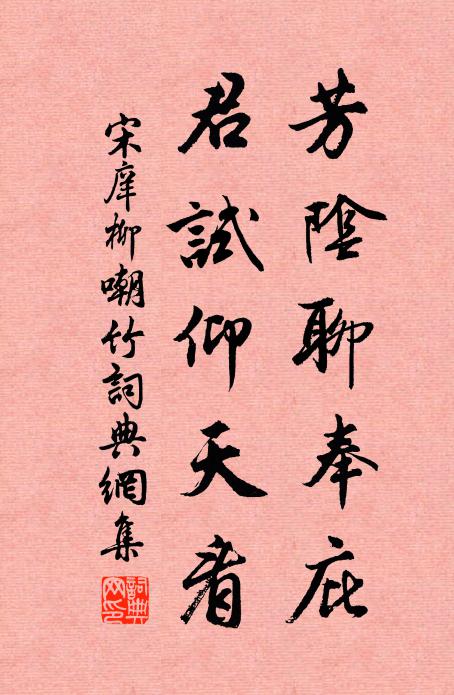 芳陰聊奉庇
君試仰天看
宋庠柳嘲竹詞典網集
詞典網印